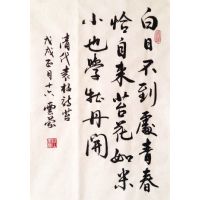 白日不到處青春
恰自来苔花如米
小也學牡丹開
清代袁枚詩苔
戊戌正月十六雲